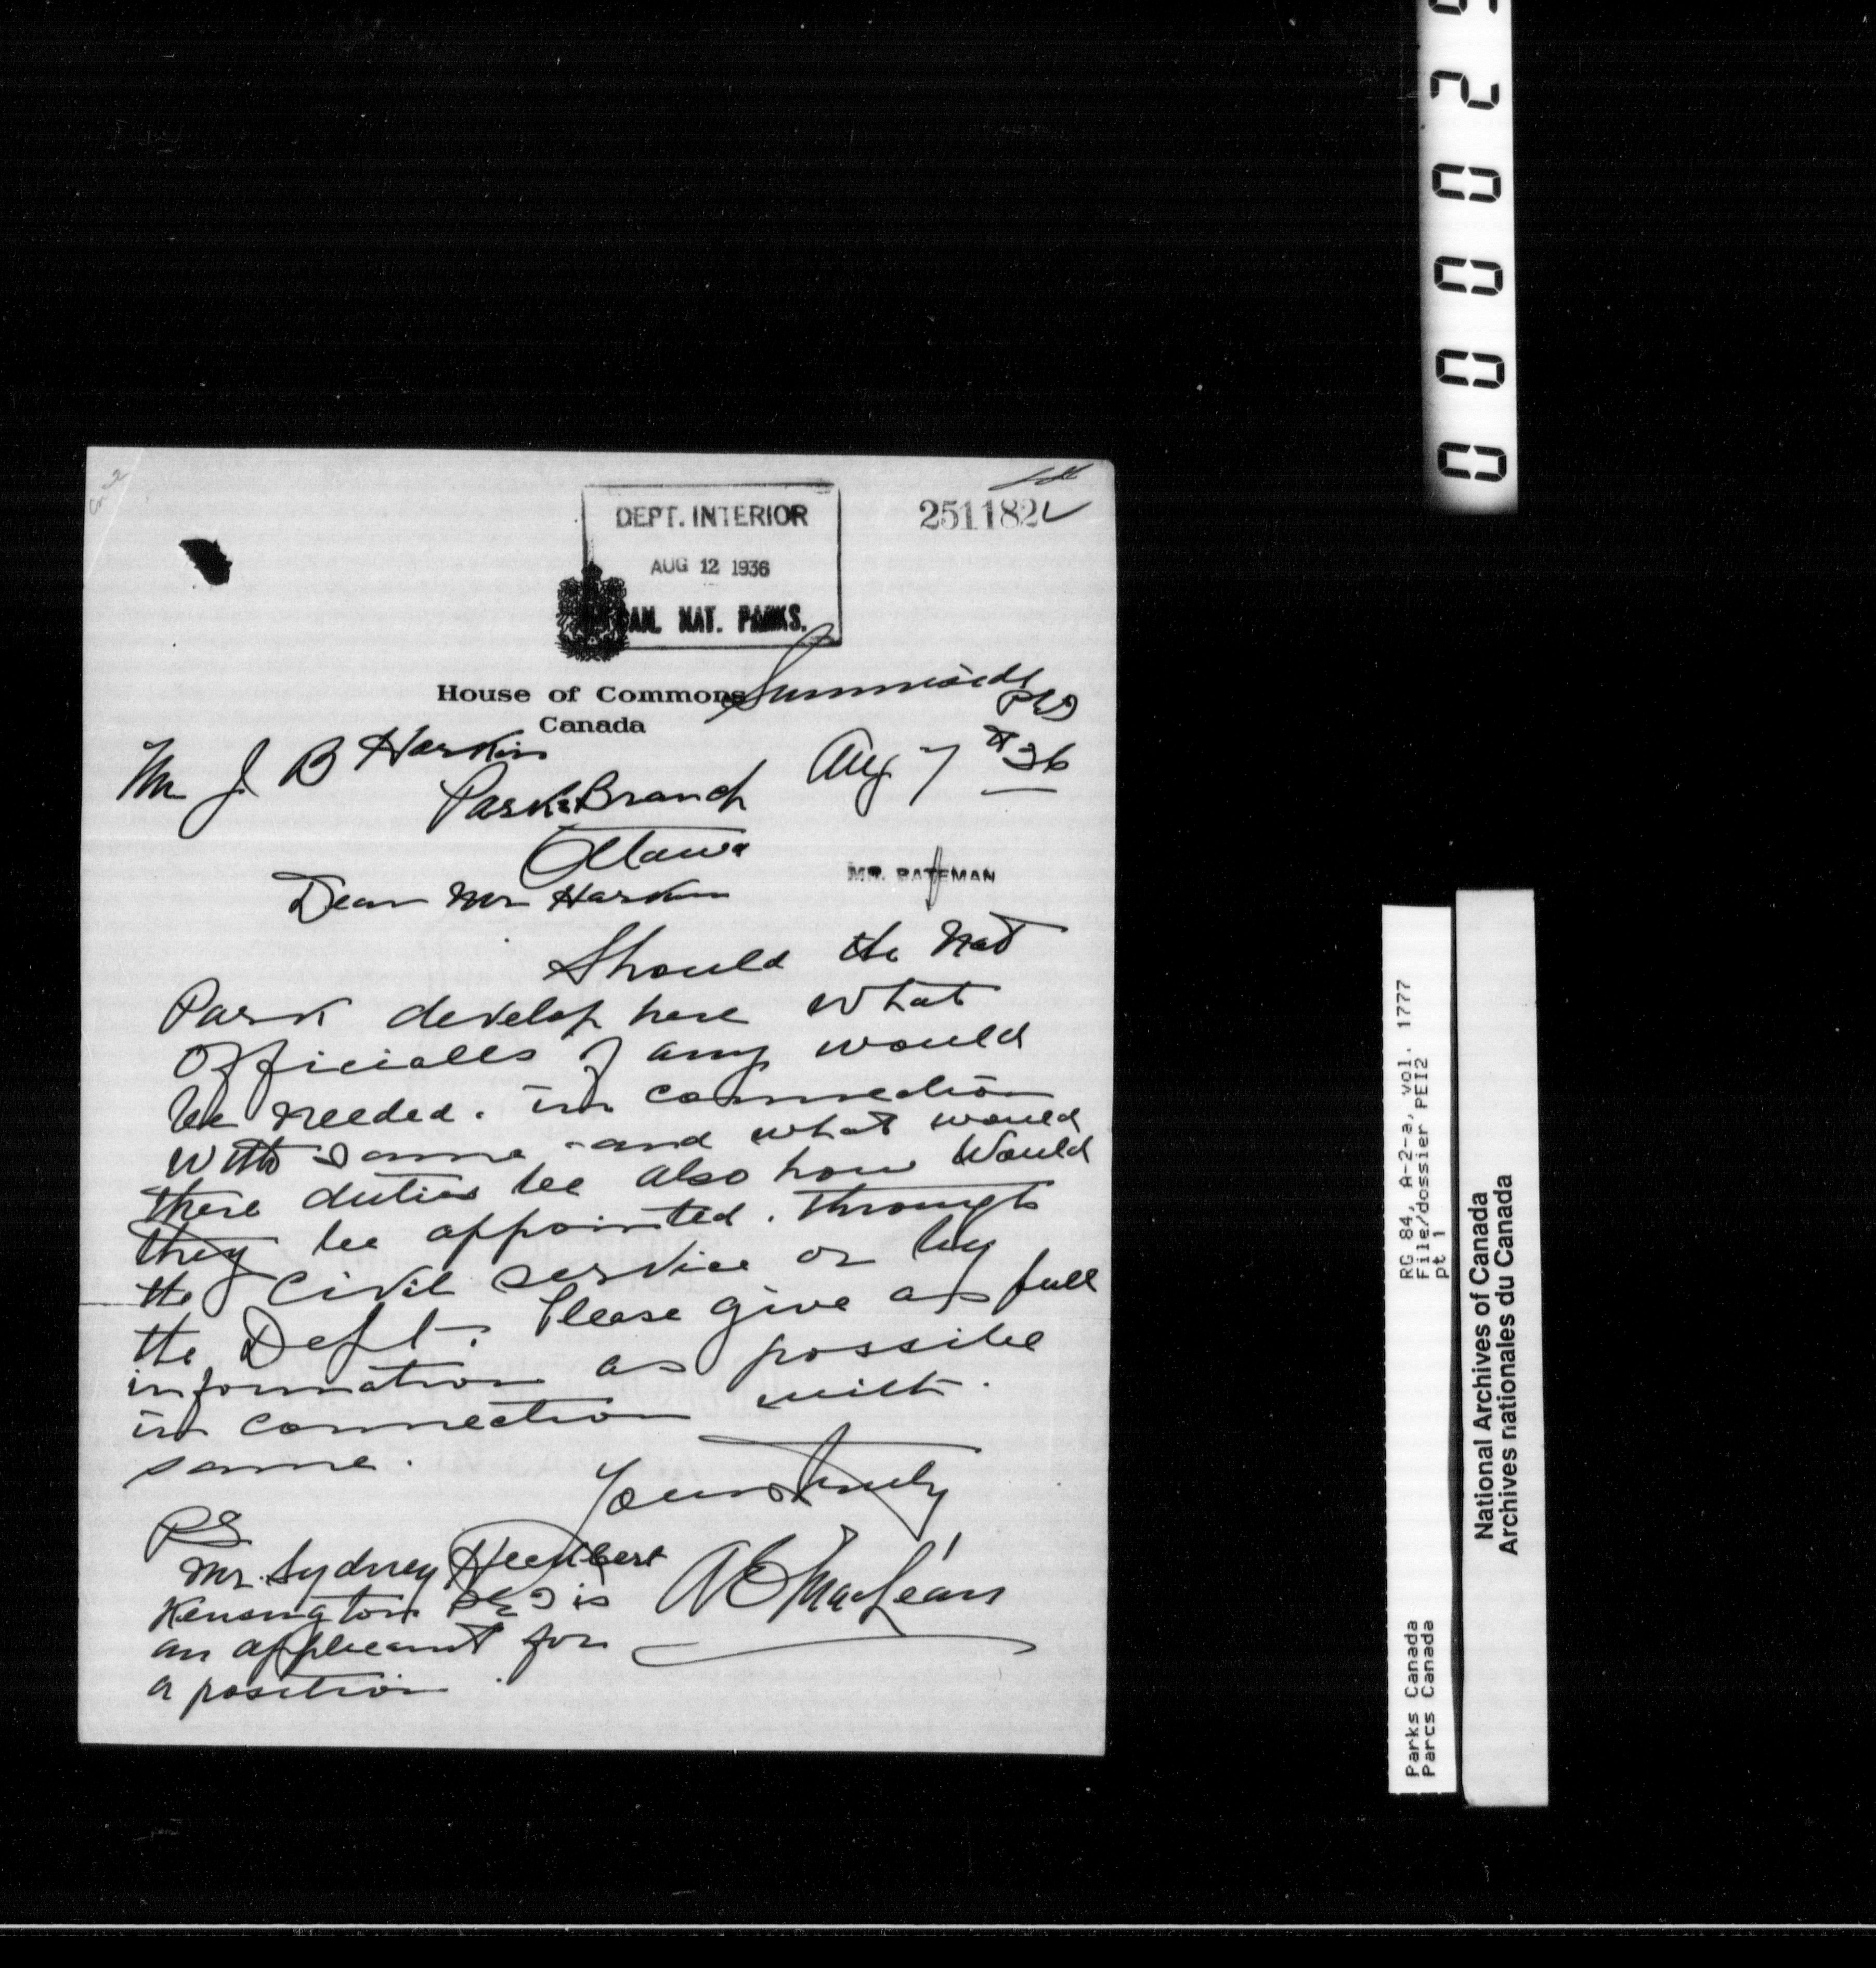 DEPT. INTERIOR
AUG 12 1936
CAN. NAT. PARKS.
251182
House of Commons
Canada
Summerside
PEI
Aug 7th 36
Mr J B Harkin
Parks Branch
Ottawa
MR. BATEMAN
Dear Mr Harkin
Should the Nat
Park develop here what
Officialls if any would
be needed. in connection
with same - and what would
there duties be also how Would
they be appointed. through
the Civil Service or by
the Dept. Please give as full
information as possible
in connection with.
same.
Yours truly
A E MacLean
PS
Mr. Sydney
Kensington PEI is
an applicant for
a position.
00002
RG 84, A-2-a, vol. 1777
File/dossier PEI2
pt 1
Parks Canada
Parcs Canada
National Archives of Canada
Archives nationales du Canada